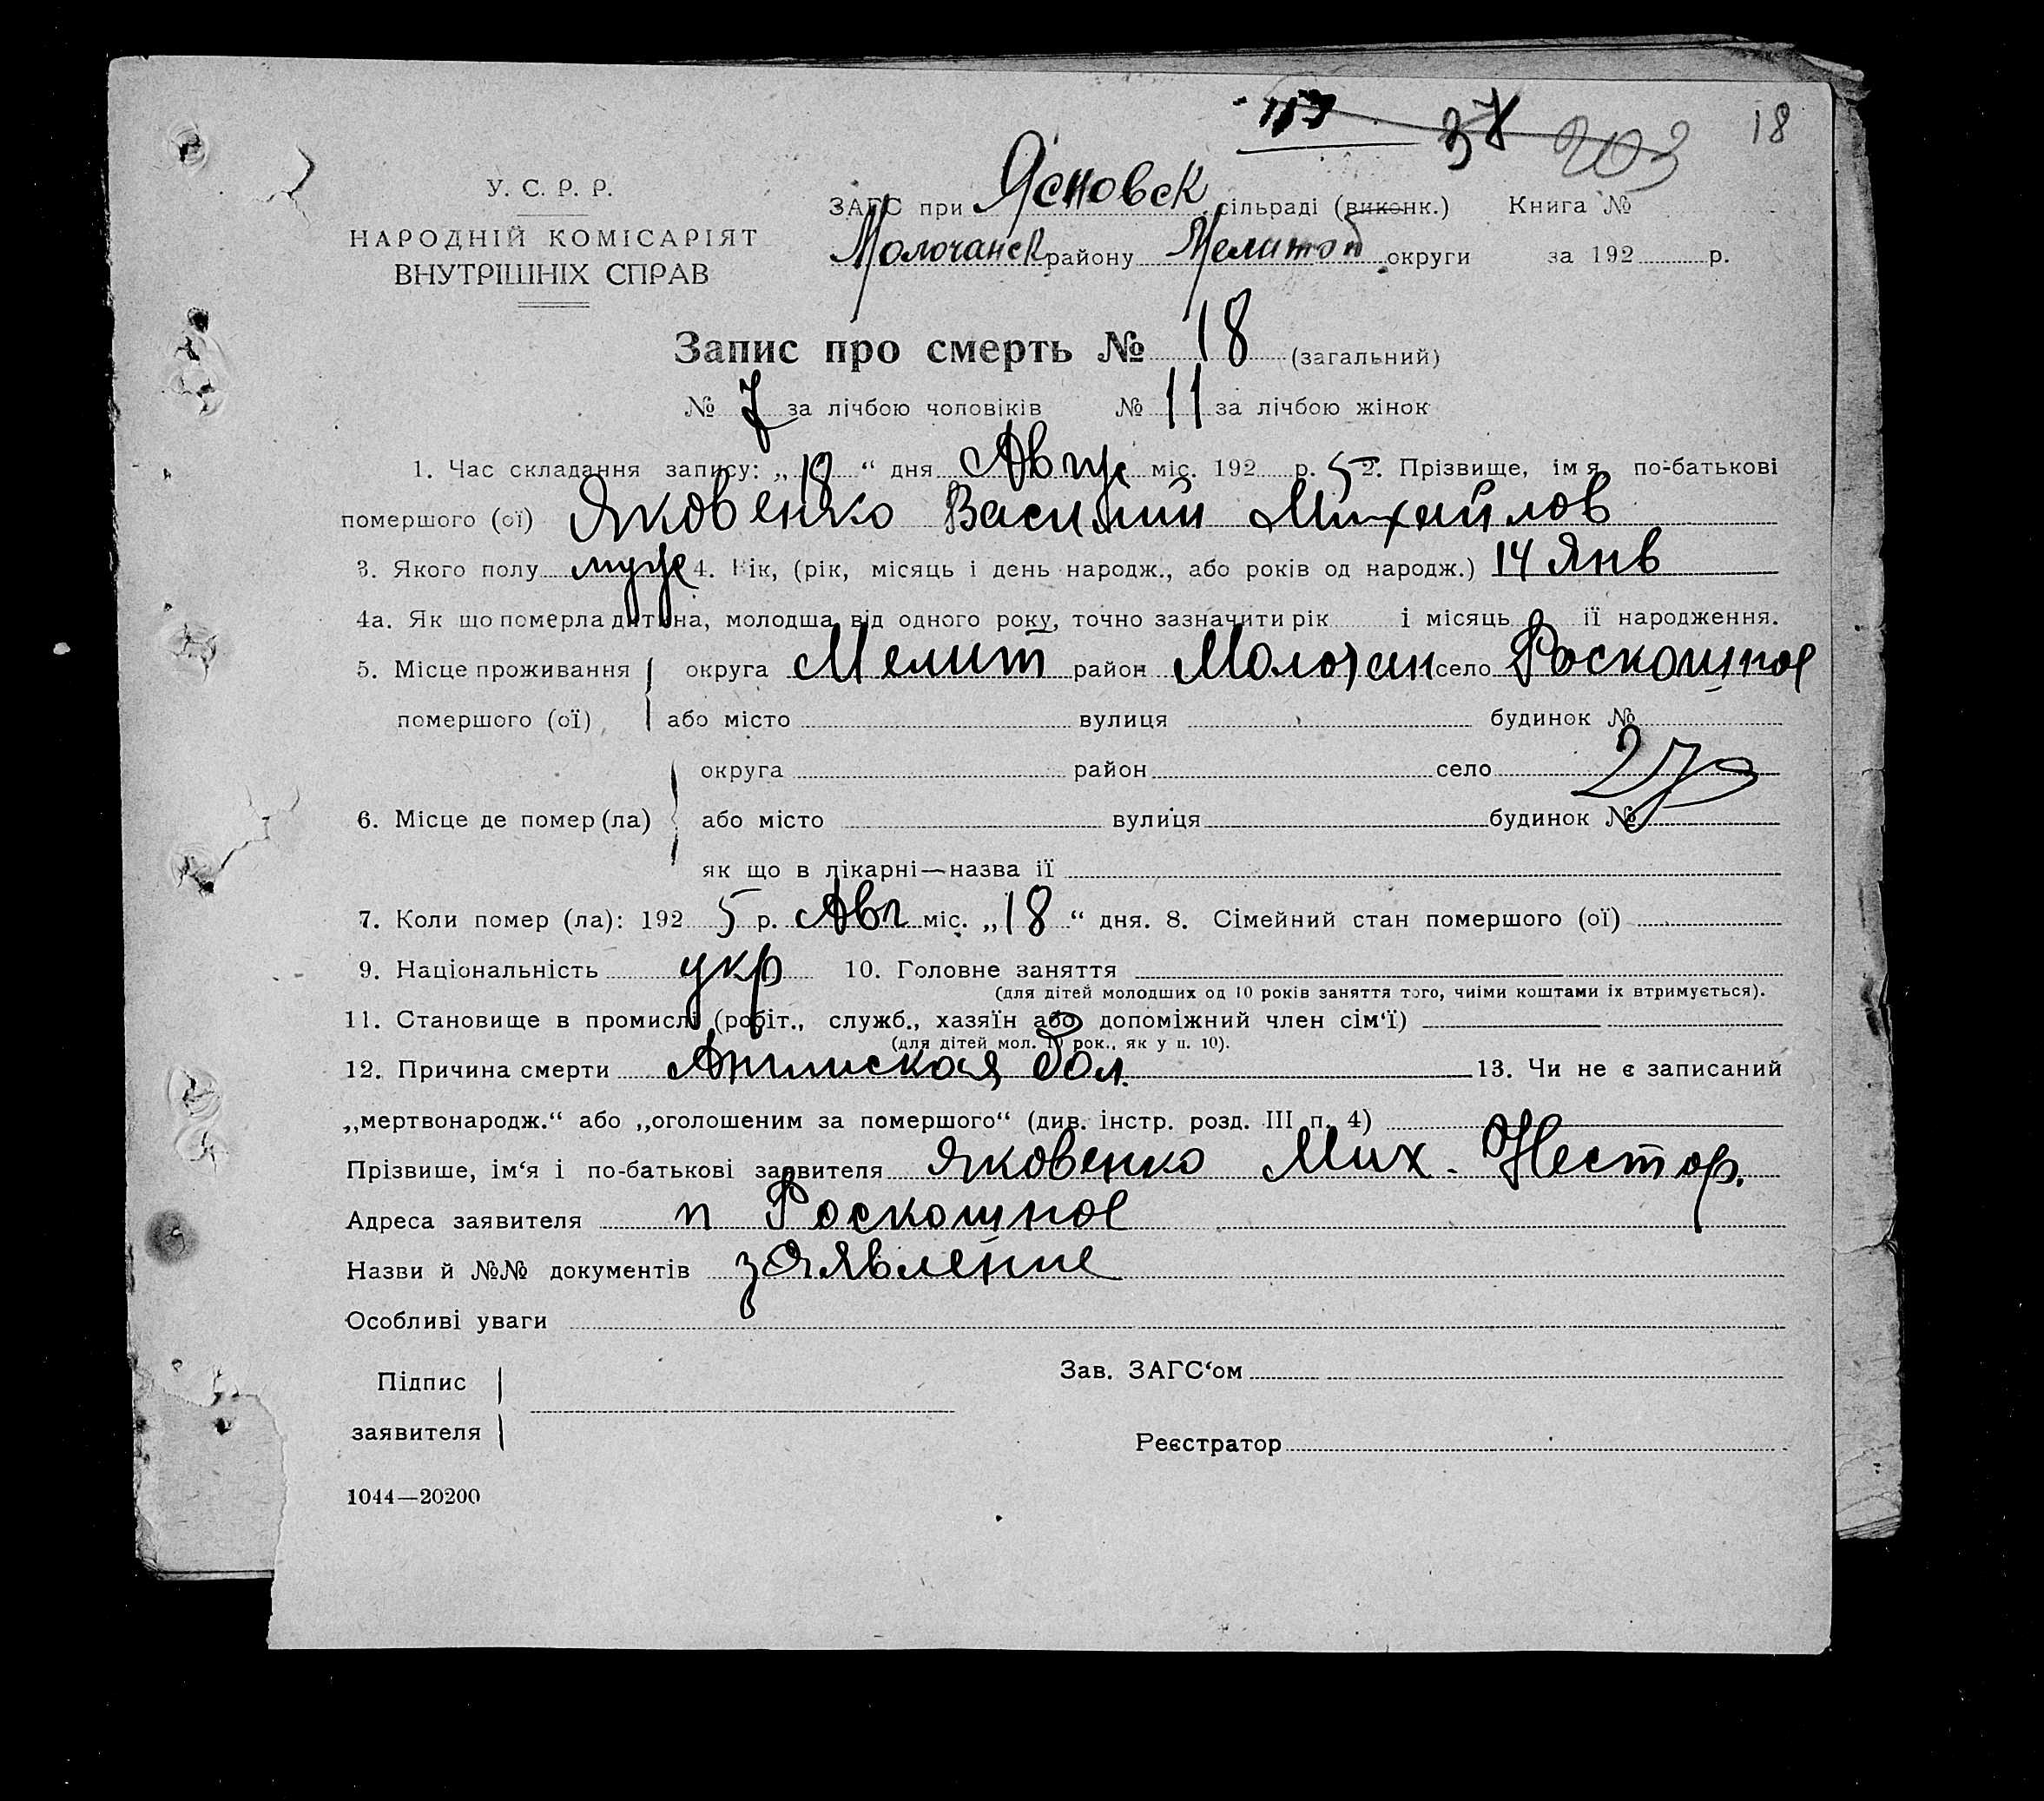 37 203 18
У. С. Р. Р.
НАРОДНІЙ КОМІСАРІЯТ
ВНУТРІШНІХ СПРАВ
ЗАГС при Ясновск сільраді (виконк.) Книга №
Молочанск району Мелитоп округи за 192 р.
Запис про смерть № 18 (загальний)
№ 7 за лічбою чоловіків № 11 за лічбою жінок
1. Час складання запису: „ 19 “ дня Авгус міс. 192 р. 5 2. Прізвище, імя по-батькові
помершого (ої) Яковенко Василий Михайлов
3. Якого полу муж 4. Вік, (рік, місяць і день народж., або років од народж.) 14 Янв
4а. Як що померла дитина, молодша від одного року, точно зазначити рік і місяць її народження.
5. Місце проживання округа Мелит район Молочан село Роскошное
помершого (ої) або місто вулиця будинок №
округа район село
27
6. Місце де помер (ла) або місто вулиця будинок №
як що в лікарні—назва її
7. Коли помер (ла): 192 5 р. Авг міс. „ 18 “ дня. 8. Сімейний стан помершого (ої)
9. Національність укр 10. Головне заняття
(для дітей молодших од 10 років заняття того, чиїми коштами їх втримується).
11. Становище в промислі (робіт., служб., хазяїн або допоміжний член сім‘ї)
(для дітей мол. 10 рок., як у п. 10).
12. Причина смерти Англиская бол. 13. Чи не є записаний
„мертвонародж.“ або „оголошеним за помершого“ (див. інстр. розд. III п. 4)
Прізвише, ім‘я і по-батькові заявителя Яковенко Мих. Нестор.
Адреса заявителя п Роскошное
Назви й №№ документів заявление
Особливі уваги
Підпис
заявителя
Зав. ЗАГС‘ом
Реєстратор
1044—20200